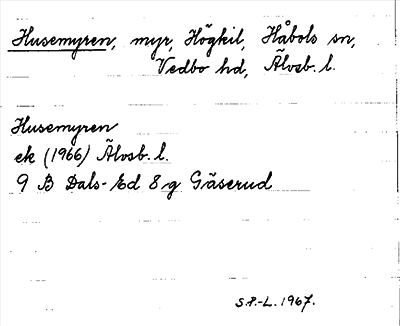 Husemyren, myr, Högkil, Håbols sn,
Vedbo hd, Älvsb. l.
Husemyren
ek (1966) Älvsb. l.
9 B Dals-Ed 8 g Gäserud
S.P.-L. 1967.